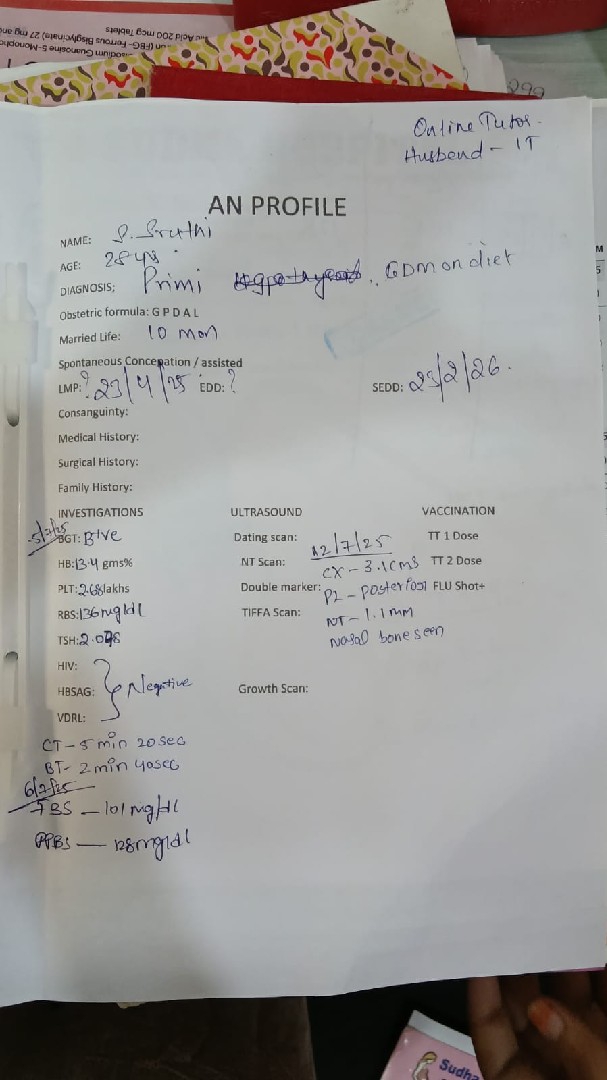 lic Acid 200 mcg Tablets
Disodium Guanosine-5-Monophosp
Ferrous Bisglycinate) 27 mg and
299
Online Tutor.
Husband - IT
AN PROFILE
NAME: S. Sruthi
AGE: 28 yrs
DIAGNOSIS; Primi Hypothyroid. GDM on diet
Obstetric formula: G P D A L
Married Life: 10 mon
Spontaneous Conception / assisted
LMP:? 23/4/25 EDD: ? SEDD: 23/2/26.
Consanguinty:
Medical History:
Surgical History:
Family History:
INVESTIGATIONS ULTRASOUND VACCINATION
5/7/25
BGT: B+ve Dating scan: TT 1 Dose
12/7/25
HB:13.4 gms% NT Scan: CX - 3.1cms TT 2 Dose
PLT:2.68lakhs Double marker: PL - Posterior FLU Shot+
RBS:136mg/dl TIFFA Scan: NT - 1.1mm
TSH:2.098 Nasal bone seen
HIV:
HBSAG: Negative Growth Scan:
VDRL:
CT - 5 min 20 sec
BT - 2 min 40 sec
6/7/25
FBS - 101 mg/dl
PPBS - 128mg/dl
M
Sudha